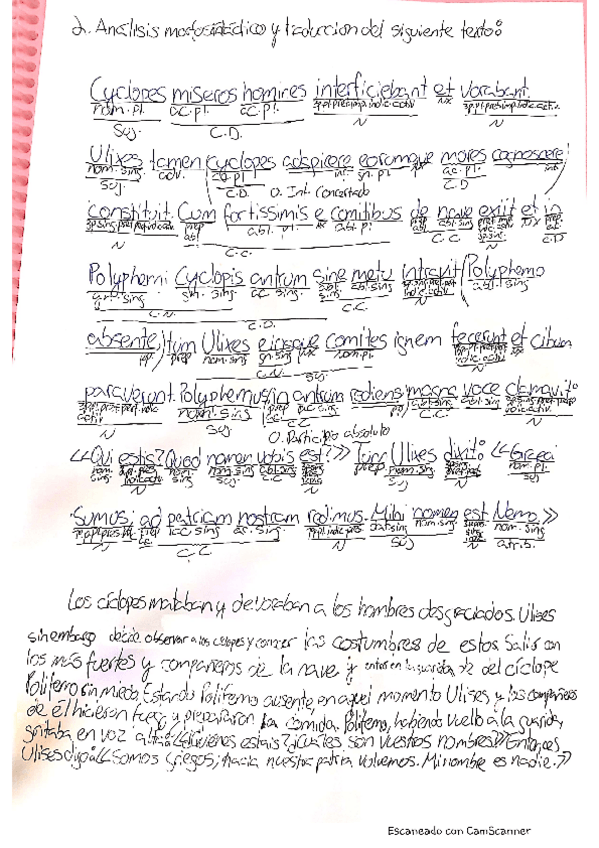 2. Análisis morfosintáctico y traducción del siguiente texto:
Cyclopes miseros homines interficiebant et vorabant.
nom. pl. ac. pl. ac. pl.
Suj. C.D. N N
Ulixes tamen Cyclopes adspicere eorumque mores cognoscere
nom. sing. adv. ac. pl. inf. gn. pl. ac. pl. inf.
Suj. C.D. O. Inf. Concertado C.D
constituit. Cum fortissimis e comitibus de nave exiit et in
prep abl. pl. abl. pl.
N C.C. C.C N
Polyphemi Cyclopis antrum sine metu intravit. Polyphemo
gn. sing. ac. sing. abl. sing. abl. sing
C.N. C.D. C.C. N
absente, tum Ulixes eiusque comites ignem fecerunt et cibum
prep nom. sing gn. sing nom. pl.
C.N. Suj. N
paraverunt. Polyphemus, in antrum rediens, magna voce clamavit:
nom. sing prep ac. sing. abl. sing abl. sing
N Suj. C.C C.C. N
O. Participio absoluto
«Qui estis? Quod nomen vobis est?» Tum Ulixes dixit: «Graeci
nom. sing nom. pl.
Suj N Suj
Sumus; ad patriam nostram redimus. Mihi nomen est Nemo.»
prep ac. sing ac. sing. dat. sing nom. sing. nom. sing
N C.C N Suj N atrib.
Los cíclopes mataban y devoraban a los hombres desgraciados. Ulises
sin embargo decide observar a los cíclopes y conocer las costumbres de estos. Salió con
los más fuertes y compañeros de la nave y entró en la guarida de del cíclope
Polifemo sin miedo. Estando Polifemo ausente, en aquel momento Ulises y los compañeros
de él hicieron fuego y prepararon la comida. Polifemo, habiendo vuelto a la guarida,
gritaba en voz alta: «¿Quiénes estais? ¿cuáles son vuestros nombres?» Entonces
Ulises dijo: «Somos Griegos; hacia nuestra patria volvemos. Mi nombre es nadie.»
Escaneado con CamScanner